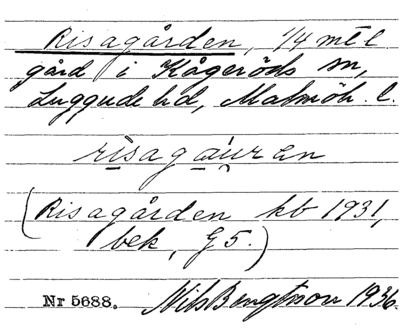 Risagården, 1/4 mtl
gård i Kågeröds sn,
Luggude hd, Malmöh. l.
risagáuran
(Risagården kb 1931,
bek, G5.)
Nr 5688. Nils Bengtsson 1936.